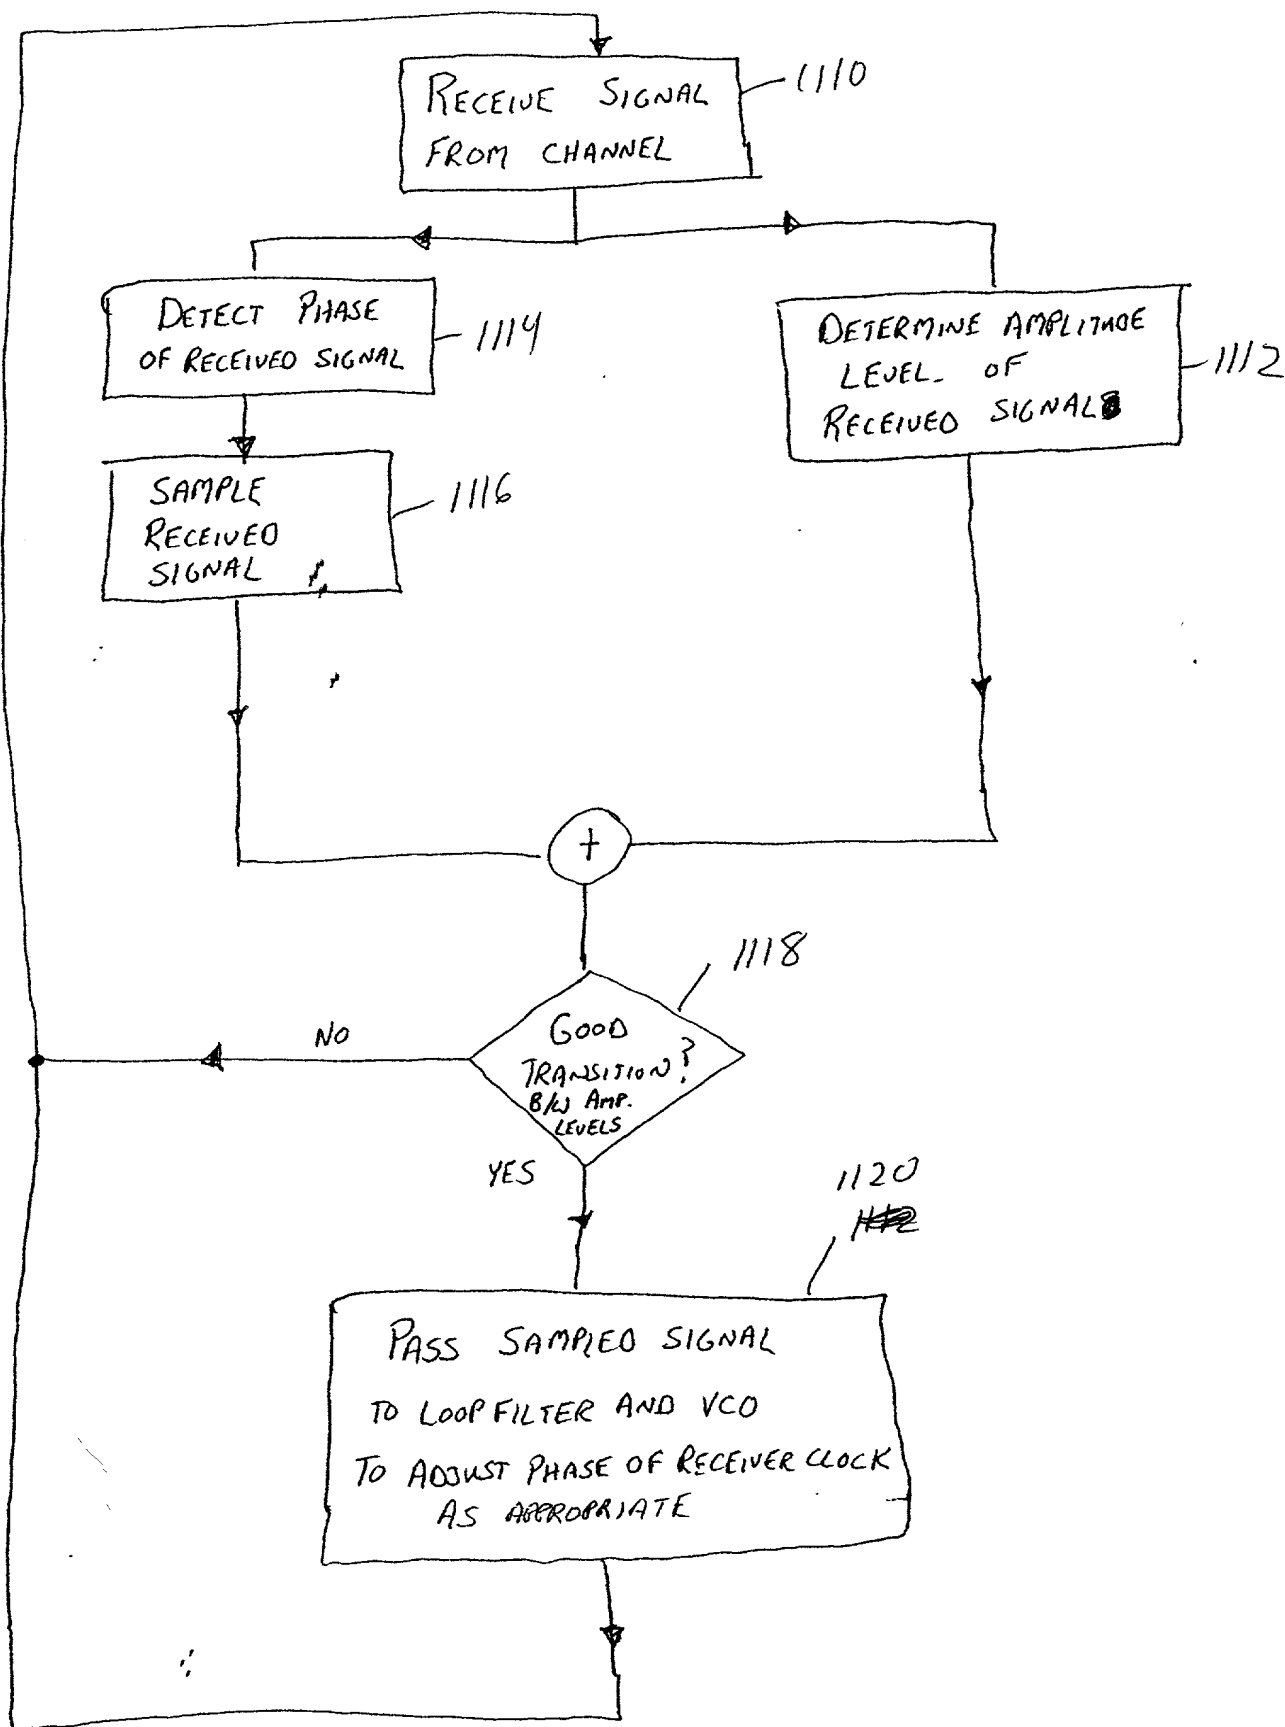 RECEIVE SIGNAL
FROM CHANNEL
1110
DETECT PHASE
OF RECEIVED SIGNAL
1114
DETERMINE AMPLITUDE
LEVEL OF
RECEIVED SIGNAL
1112
SAMPLE
RECEIVED
SIGNAL
1116
+
1118
GOOD
TRANSITION?
B/W AMP.
LEVELS
NO
YES
1120
PASS SAMPLED SIGNAL
TO LOOP FILTER AND VCO
TO ADJUST PHASE OF RECEIVER CLOCK
AS APPROPRIATE